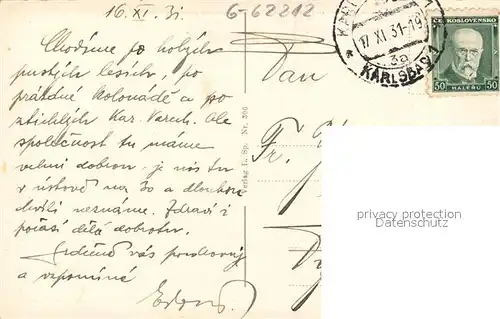 16. XI. 31.
G-62212
KARLSBAD 1
17. XI. 31-19
3a
ČESKOSLOVENSKO
50 HALÉŘŮ 50
Chodíme po holých
pustých lesích, po
prázdné kolonádě a po
ztichlých Kar. Varech. Ale
společnost tu máme
velmi dobrou - je nás tu
v ústavě na 80 a dlouhou
chvíli neznáme. Zdraví i
počasí dělá dobrotu.
Srdečně vás pozdravuj
a vzpomíná
Verlag R. Sp. Nr. 306
Pan
Fr.
privacy protection
Datenschutz